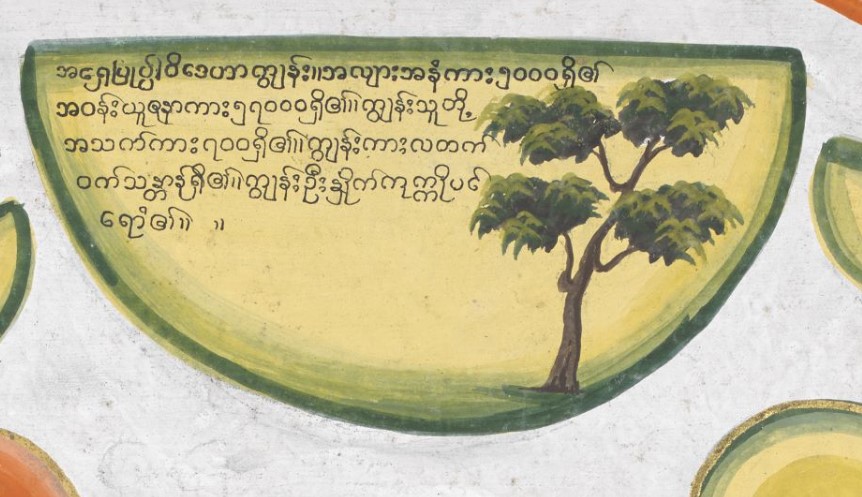 အရှေ့ပြုပ္ပါဝိဒေဟာကျွန်း။အလျားအနံကား၅၀၀၀ရှိ၏
အဝန်းယူဇနာကား၅၇၀၀၀ရှိ၏။ကျွန်းသူတို့
အသက်ကား၇၀၀ရှိ၏။ကျွန်းကားလထက်
ဝက်သဏ္ဌာန်ရှိ၏။ကျွန်းဦးနှိုက်ကုက္ကိုပင်
ရောံ၏။ ။